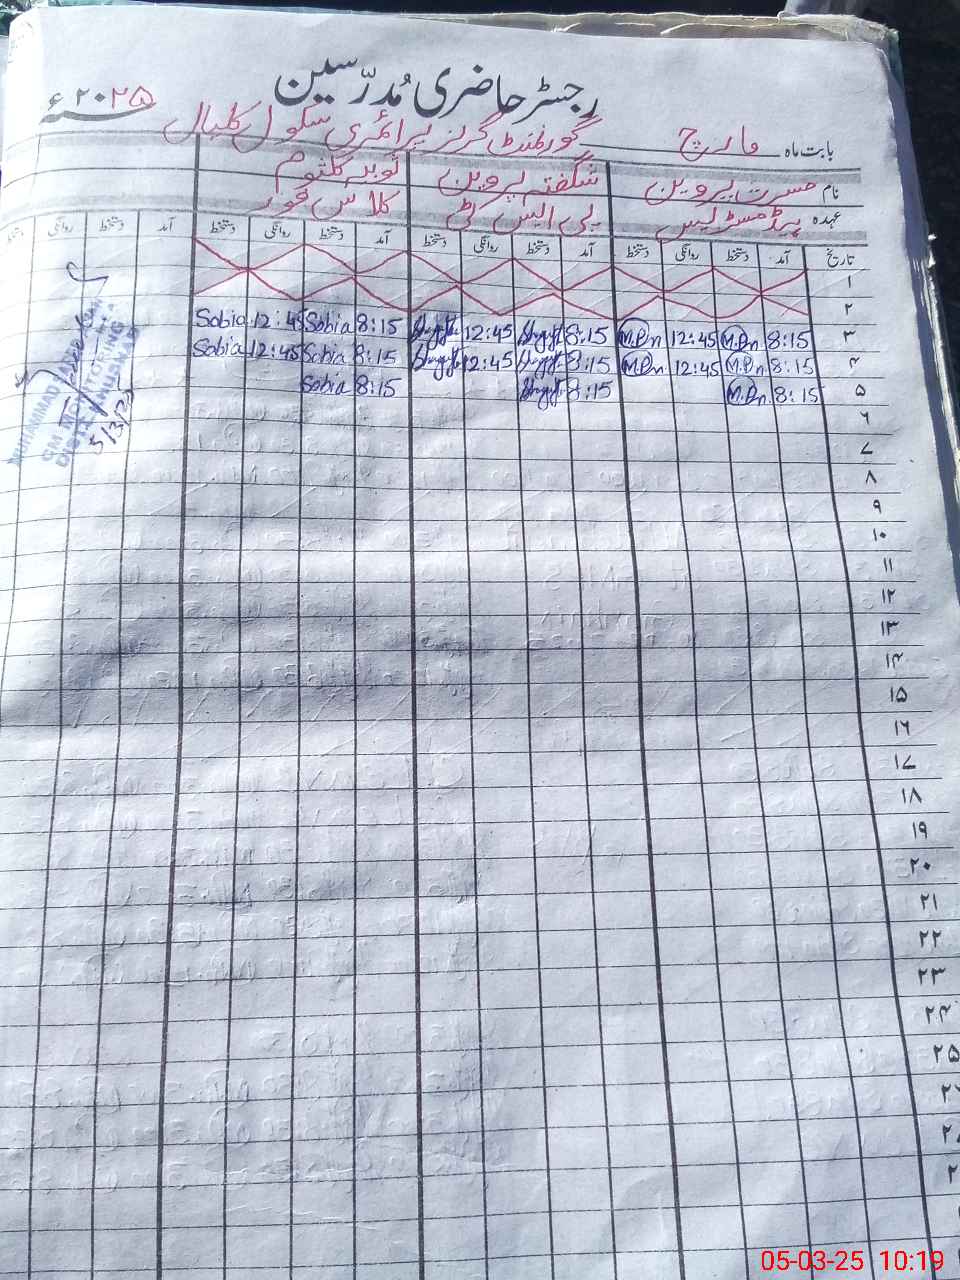 رجسٹر حاضری مُدرّسین
بابت ماہ مارچ گورنمنٹ گرلز پرائمری سکول کلیال سنہ ۲۰۲۵ء
نام مسرت پروین شگفتہ پروین ثوبیہ کلثوم
عہدہ ہیڈمسٹریس پی ایس ٹی کلاس فور
تاریخ آمد دستخط روانگی دستخط آمد دستخط روانگی دستخط آمد دستخط روانگی دستخط آمد دستخط روانگی دستخط
۱
۲
۳ 8:15 M.Pn 12:45 M.Pn 8:15 12:45 8:15 Sobia 12:45 Sobia
۴ 8:15 M.Pn 12:45 M.Pn 8:15 12:45 8:15 Sobia 12:45 Sobia
۵ 8:15 M.Pn 8:15 8:15 Sobia
۶
۷
۸
۹
۱۰
۱۱
۱۲
۱۳
۱۴
۱۵
۱۶
۱۷
۱۸
۱۹
۲۰
۲۱
۲۲
۲۳
۲۴
۲۵
MUHAMMAD
MONITORING
5/3/25
05-03-25 10:19